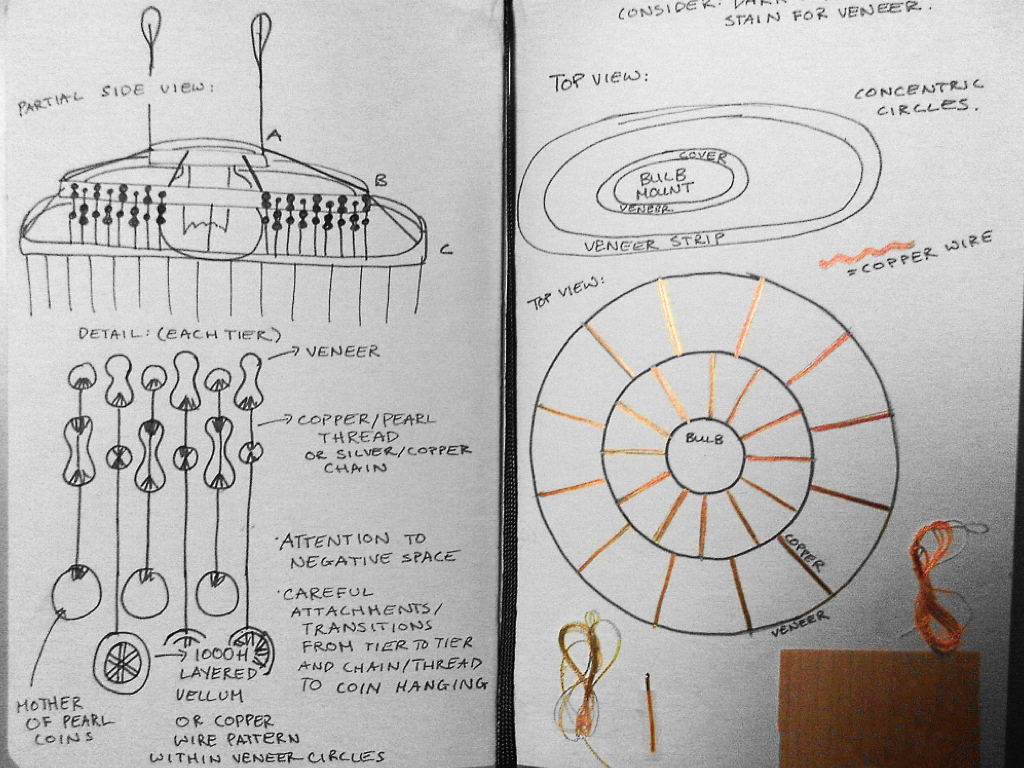 PARTIAL SIDE VIEW:
A
B
C
DETAIL: (EACH TIER)
VENEER
COPPER/PEARL
THREAD
OR SILVER/COPPER
CHAIN
·ATTENTION TO
NEGATIVE SPACE
·CAREFUL
ATTACHMENTS/
TRANSITIONS
FROM TIER TO TIER
AND CHAIN/THREAD
TO COIN HANGING
MOTHER
OF PEARL
COINS
1000H
LAYERED
VELLUM
OR COPPER
WIRE PATTERN
WITHIN VENEER CIRCLES
CONSIDER:
STAIN FOR VENEER.
TOP VIEW:
CONCENTRIC
CIRCLES.
COVER
BULB
MOUNT
VENEER
VENEER STRIP
=COPPER WIRE
TOP VIEW:
BULB
COPPER
VENEER